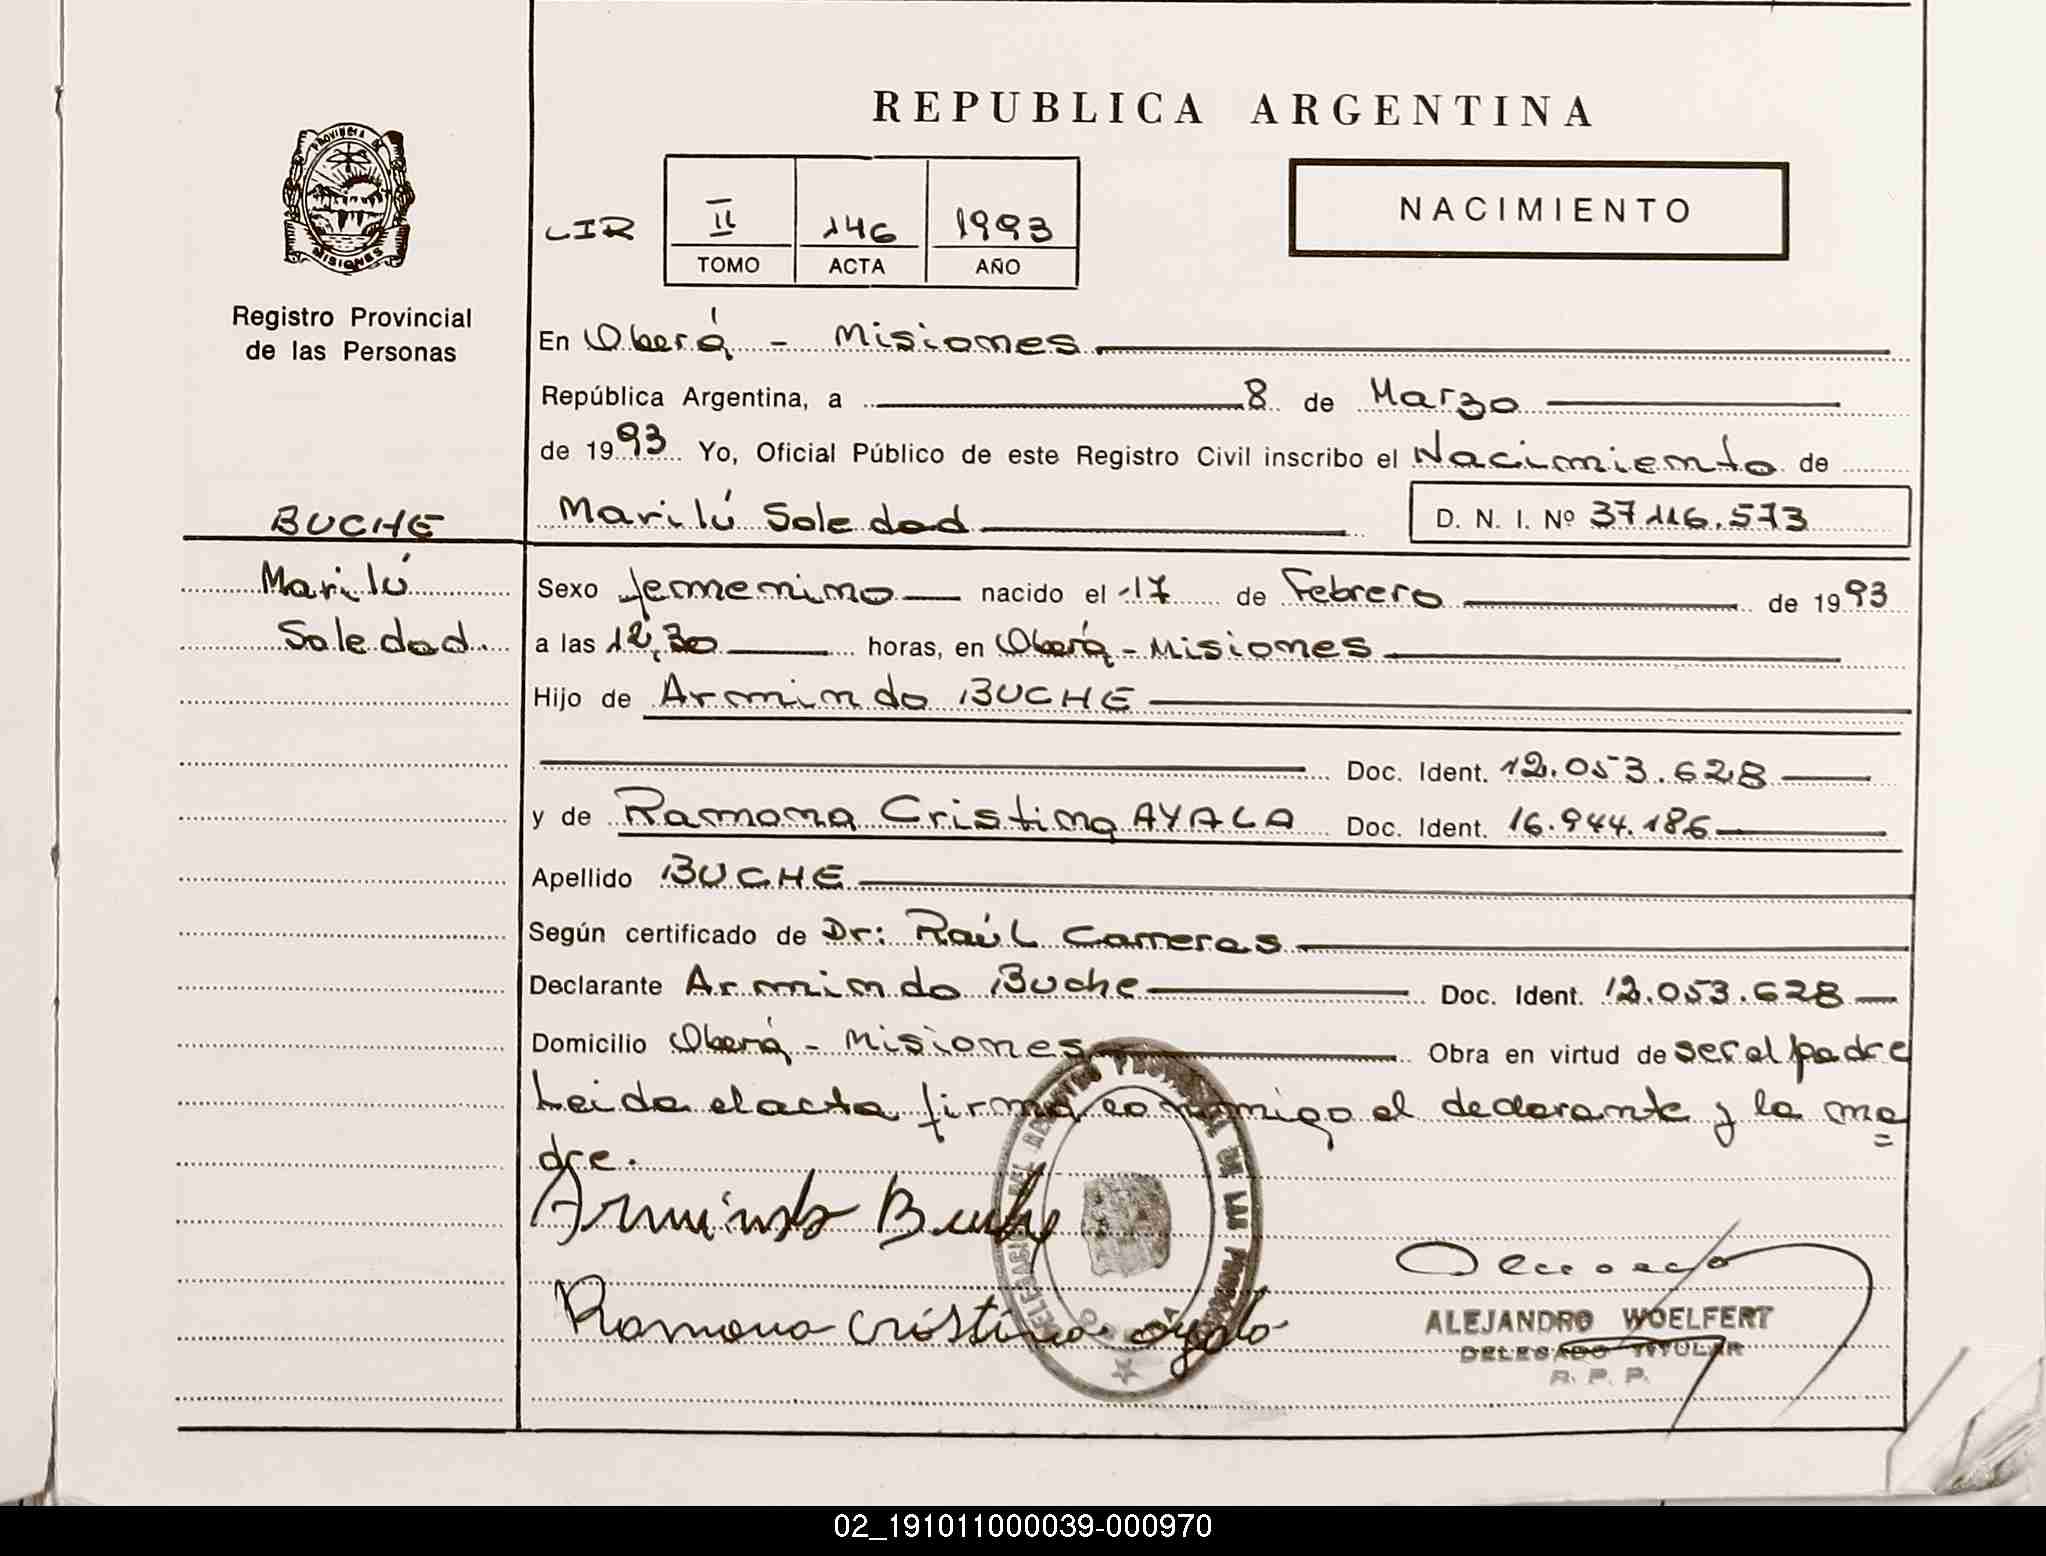 REPUBLICA ARGENTINA
PROVINCIA DE
MISIONES
Registro Provincial
de las Personas
LIR II 146 1993
TOMO ACTA AÑO
NACIMIENTO
En Oberá - Misiones
República Argentina, a 8 de Marzo
de 1993 Yo, Oficial Público de este Registro Civil inscribo el Nacimiento de
Marilú Soledad D. N. I. Nº 37.116.573
BUCHE
Marilú
Soledad
Sexo femenino nacido el 17 de Febrero de 1993
a las 12,30 horas, en Oberá - Misiones
Hijo de Armindo BUCHE
Doc. Ident. 12.053.628
y de Ramona Cristina AYALA Doc. Ident. 16.944.186
Apellido BUCHE
Según certificado de Dr: Raúl Carreras
Declarante Armindo Buche Doc. Ident. 12.053.628
Domicilio Oberá - Misiones Obra en virtud de ser el padre
Leida el acta firma conmigo el declarante y la ma=
dre.
Armindo Buche
Ramona Cristina Ayala
ALEJANDRO WOELFERT
DELEGADO TITULAR
R. P. P.
02_191011000039-000970